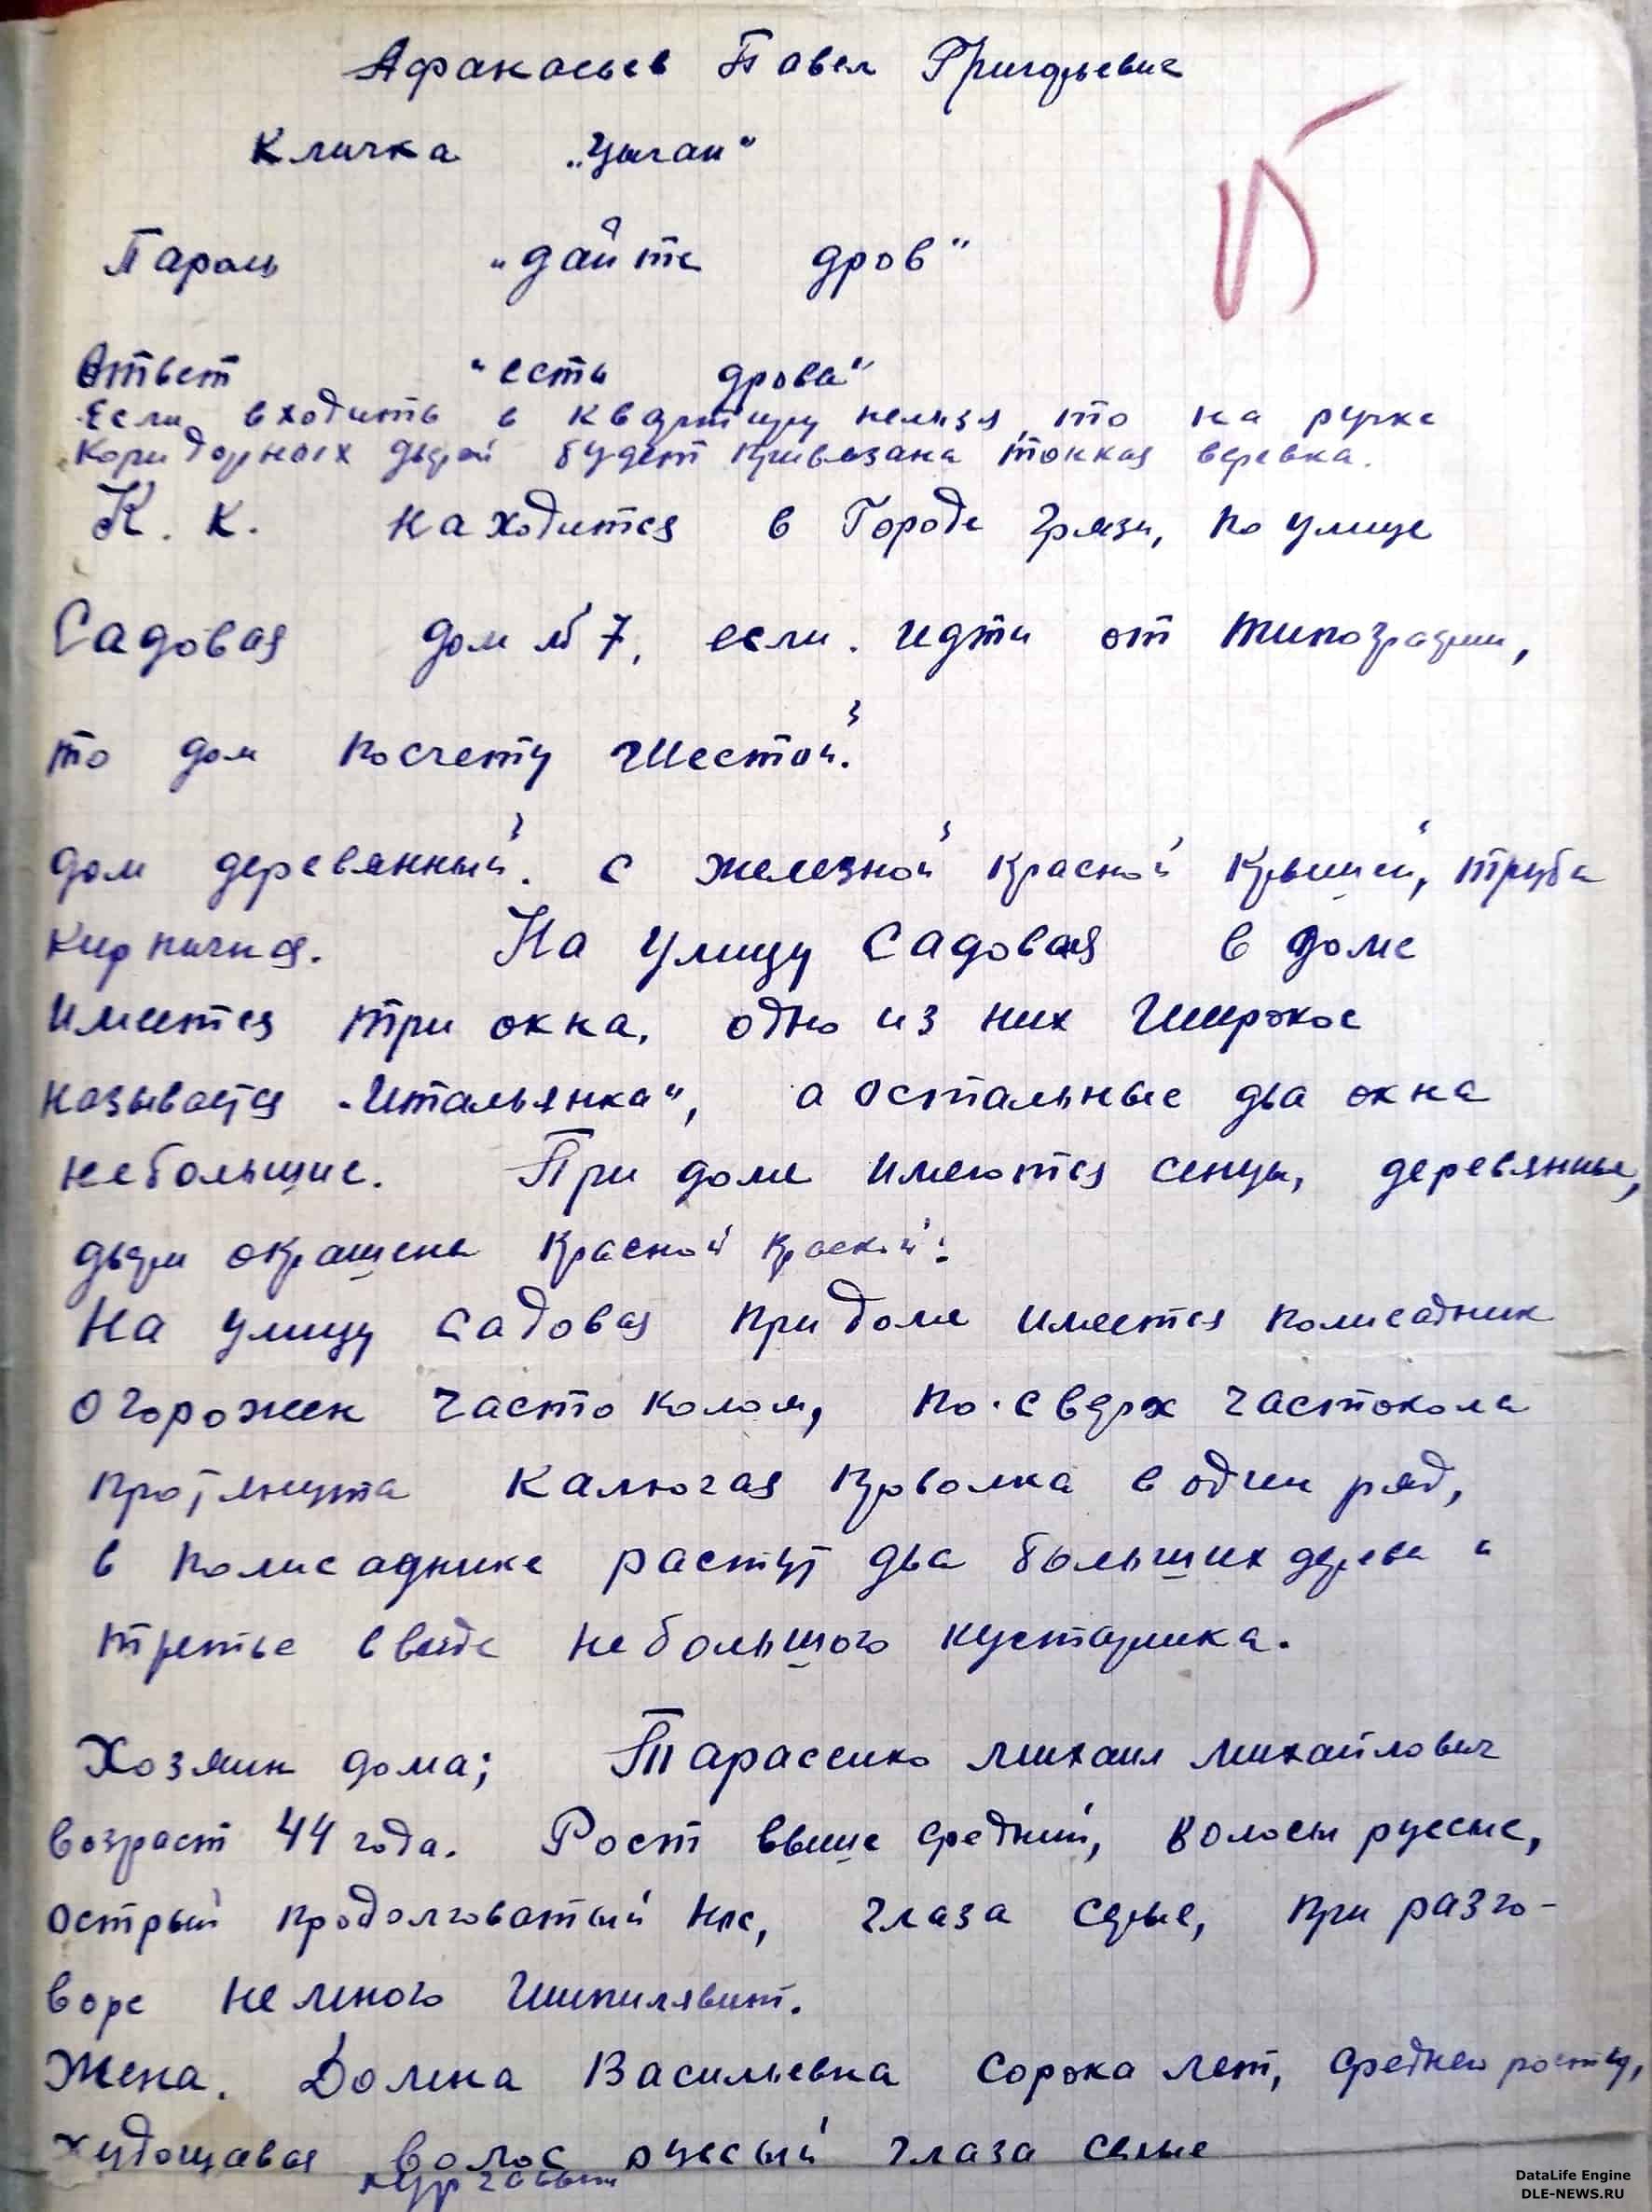 Афанасьев Павел Григорьевич
Кличка „Цыган“
Пароль „дайте дров“
Ответ „есть дрова“
Если входить в квартиру нельзя, то на ручке
коридорных дверей будет привязана тонкая веревка.
К. К. находится в Городе Грязи, по улице
Садовая дом № 7, если идти от типографии,
то дом посчету шестой.
дом деревянный с железной красной крышей, труба
кирпичная. На улицу Садовая в доме
имеется три окна, одно из них широкое
называется „Итальянка“, а остальные два окна
небольшие. При доме имеются сенцы, деревянные,
двери окрашены красной краской.
На улицу Садовая при доме имеется полисадник
огорожен частоколом, по-сверх частокола
протянута калючая проволка в один ряд,
в полисаднике растут два больших дерева и
третье в виде небольшого кустарника.
Хозяин дома; Тарасенко Михаил Михайлович
возраст 44 года. Рост выше средний, волосы русые,
острый продолговатый нос, глаза серые, при разго-
воре немного шипилявит.
Жена. Домна Васильевна сорока лет, среднего росту,
худощавая волос русый глаза серые
курчавый
15
DataLife Engine
DLE-NEWS.RU